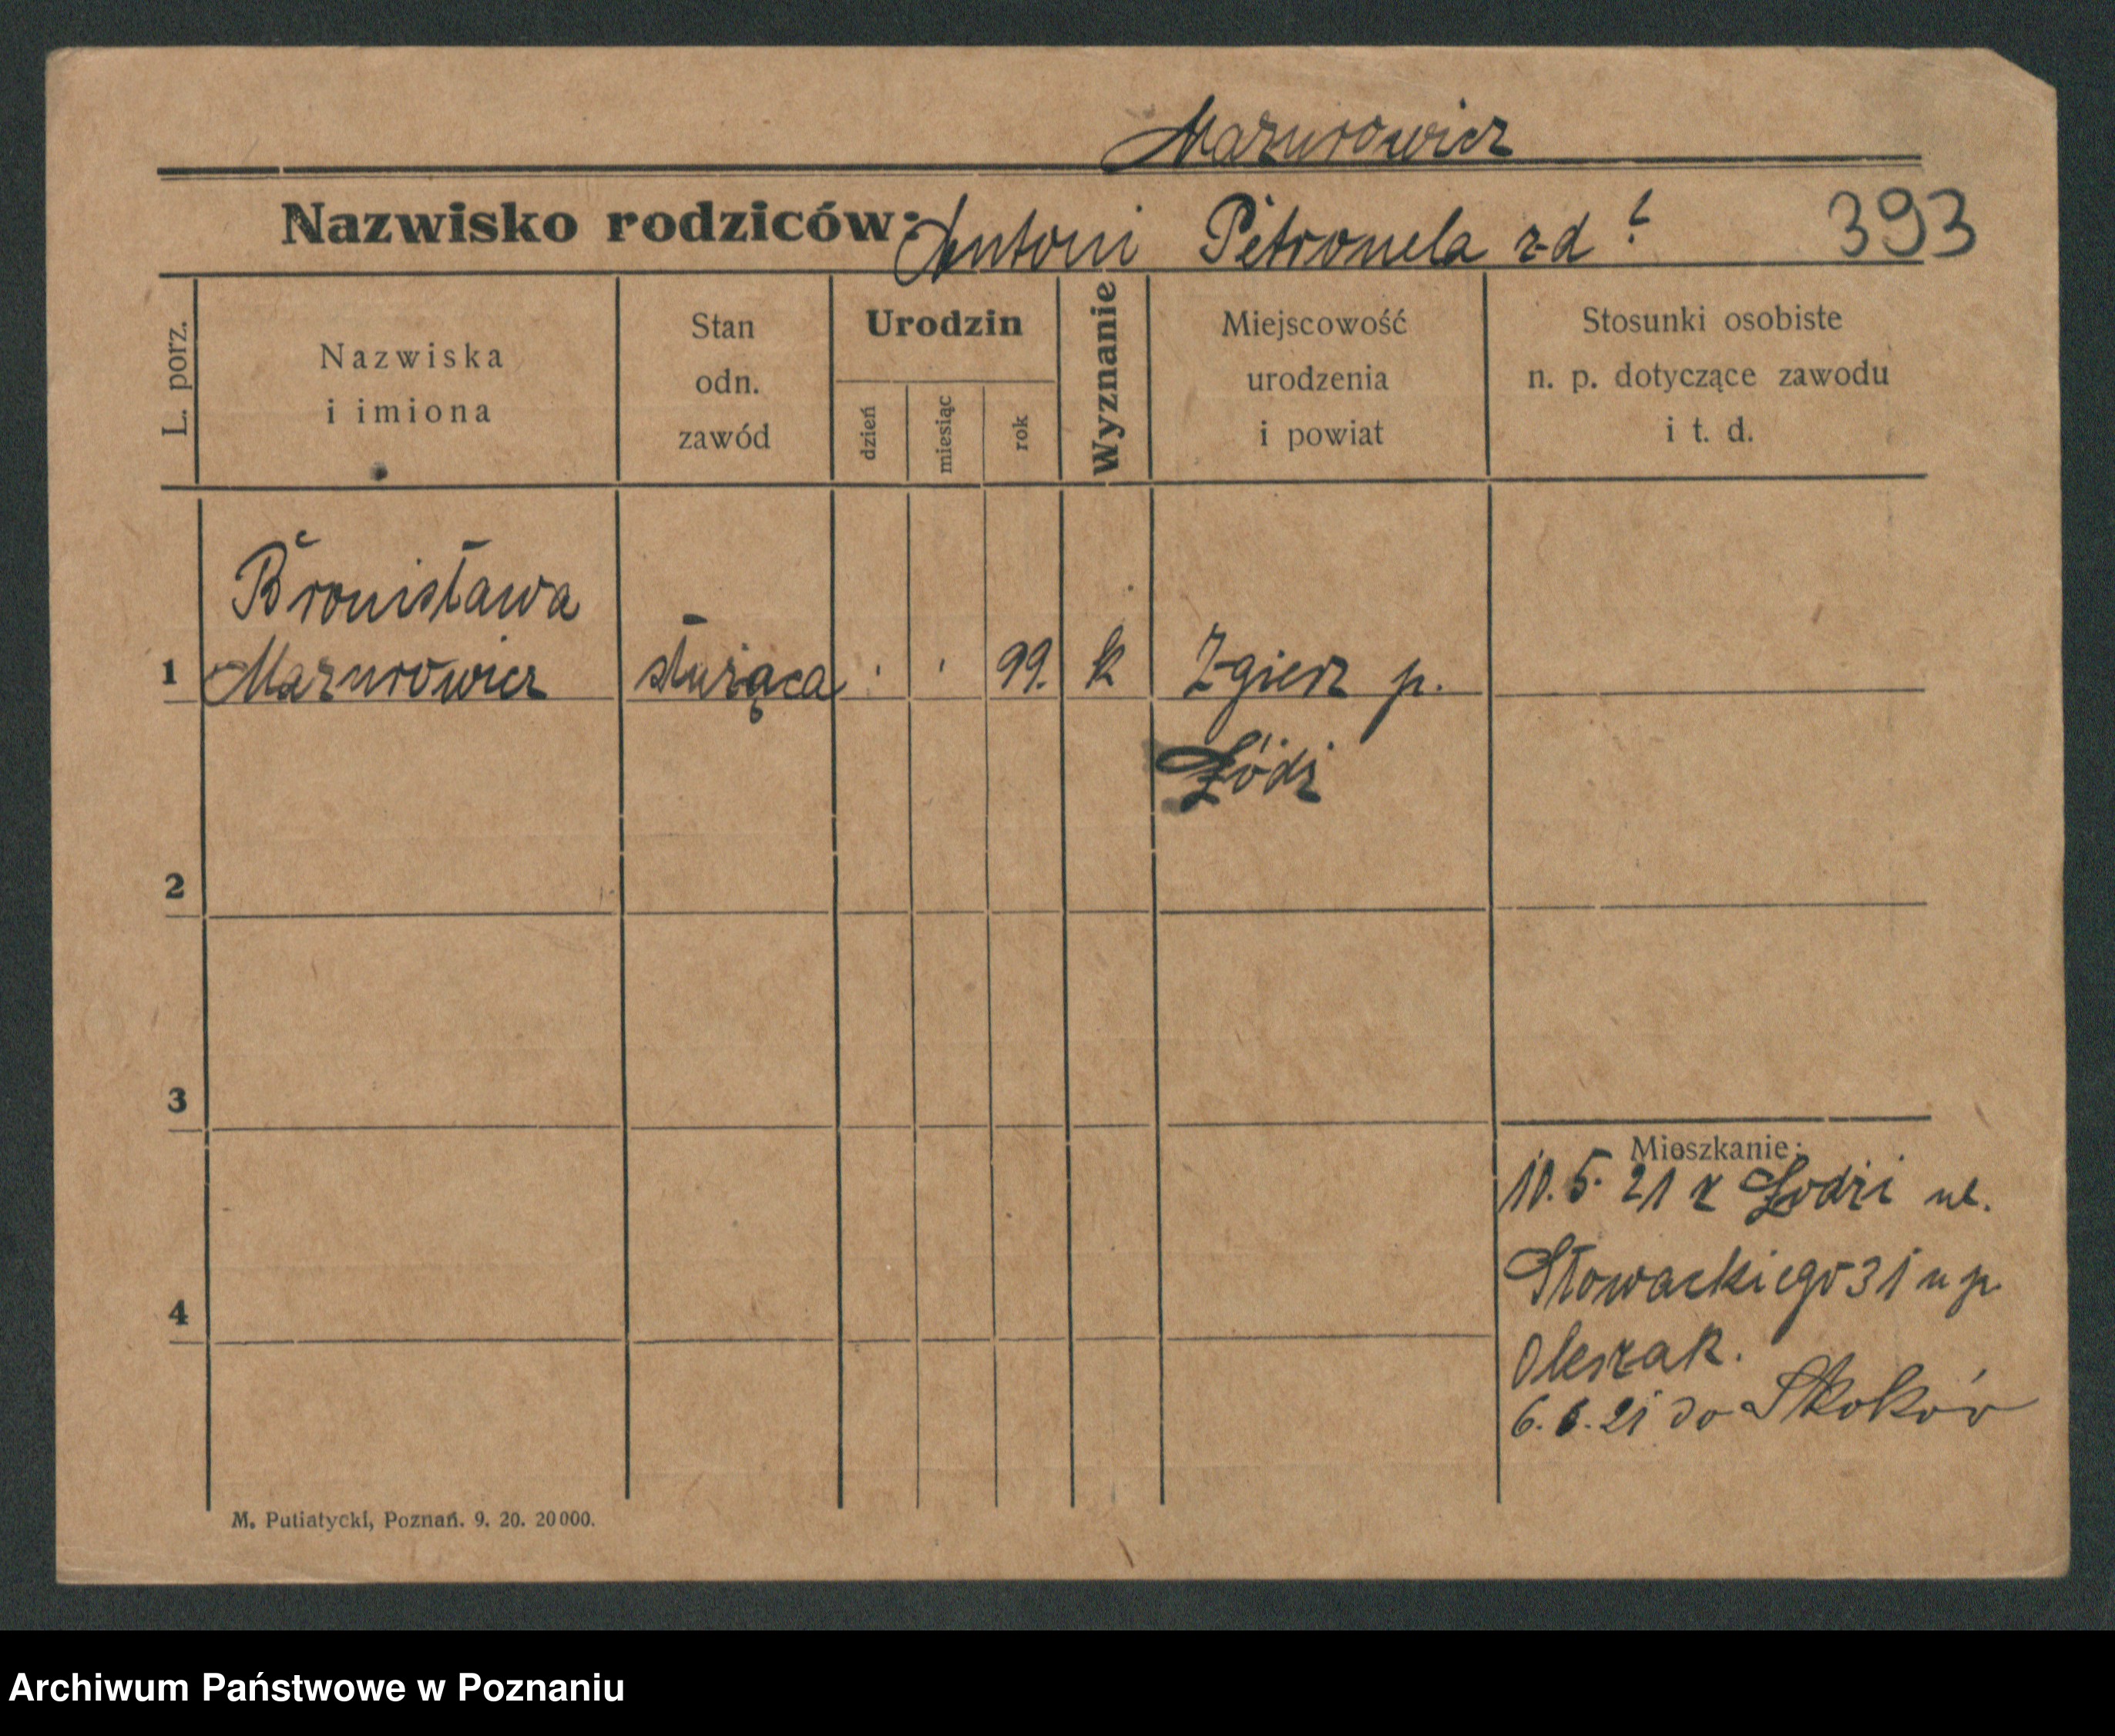 Mazurowicz
Nazwisko rodziców: Antoni Petronela z d ? 393
L. porz.
Nazwiska
i imiona
Stan
odn.
zawód
Urodzin
dzień
miesiąc
rok
Wyznanie
Miejscowość
urodzenia
i powiat
Stosunki osobiste
n. p. dotyczące zawodu
i t. d.
Bronisława
1 Mazurowicz służąca 99. k Zgierz p.
Łódź
2
3
Mieszkanie:
10. 5. 21 z Łodzi ul.
Słowackiego 31 u p
Oleszak.
4
6. 6. 21 do Skoków
M. Putiatycki, Poznań. 9. 20. 20000.
Archiwum Państwowe w Poznaniu